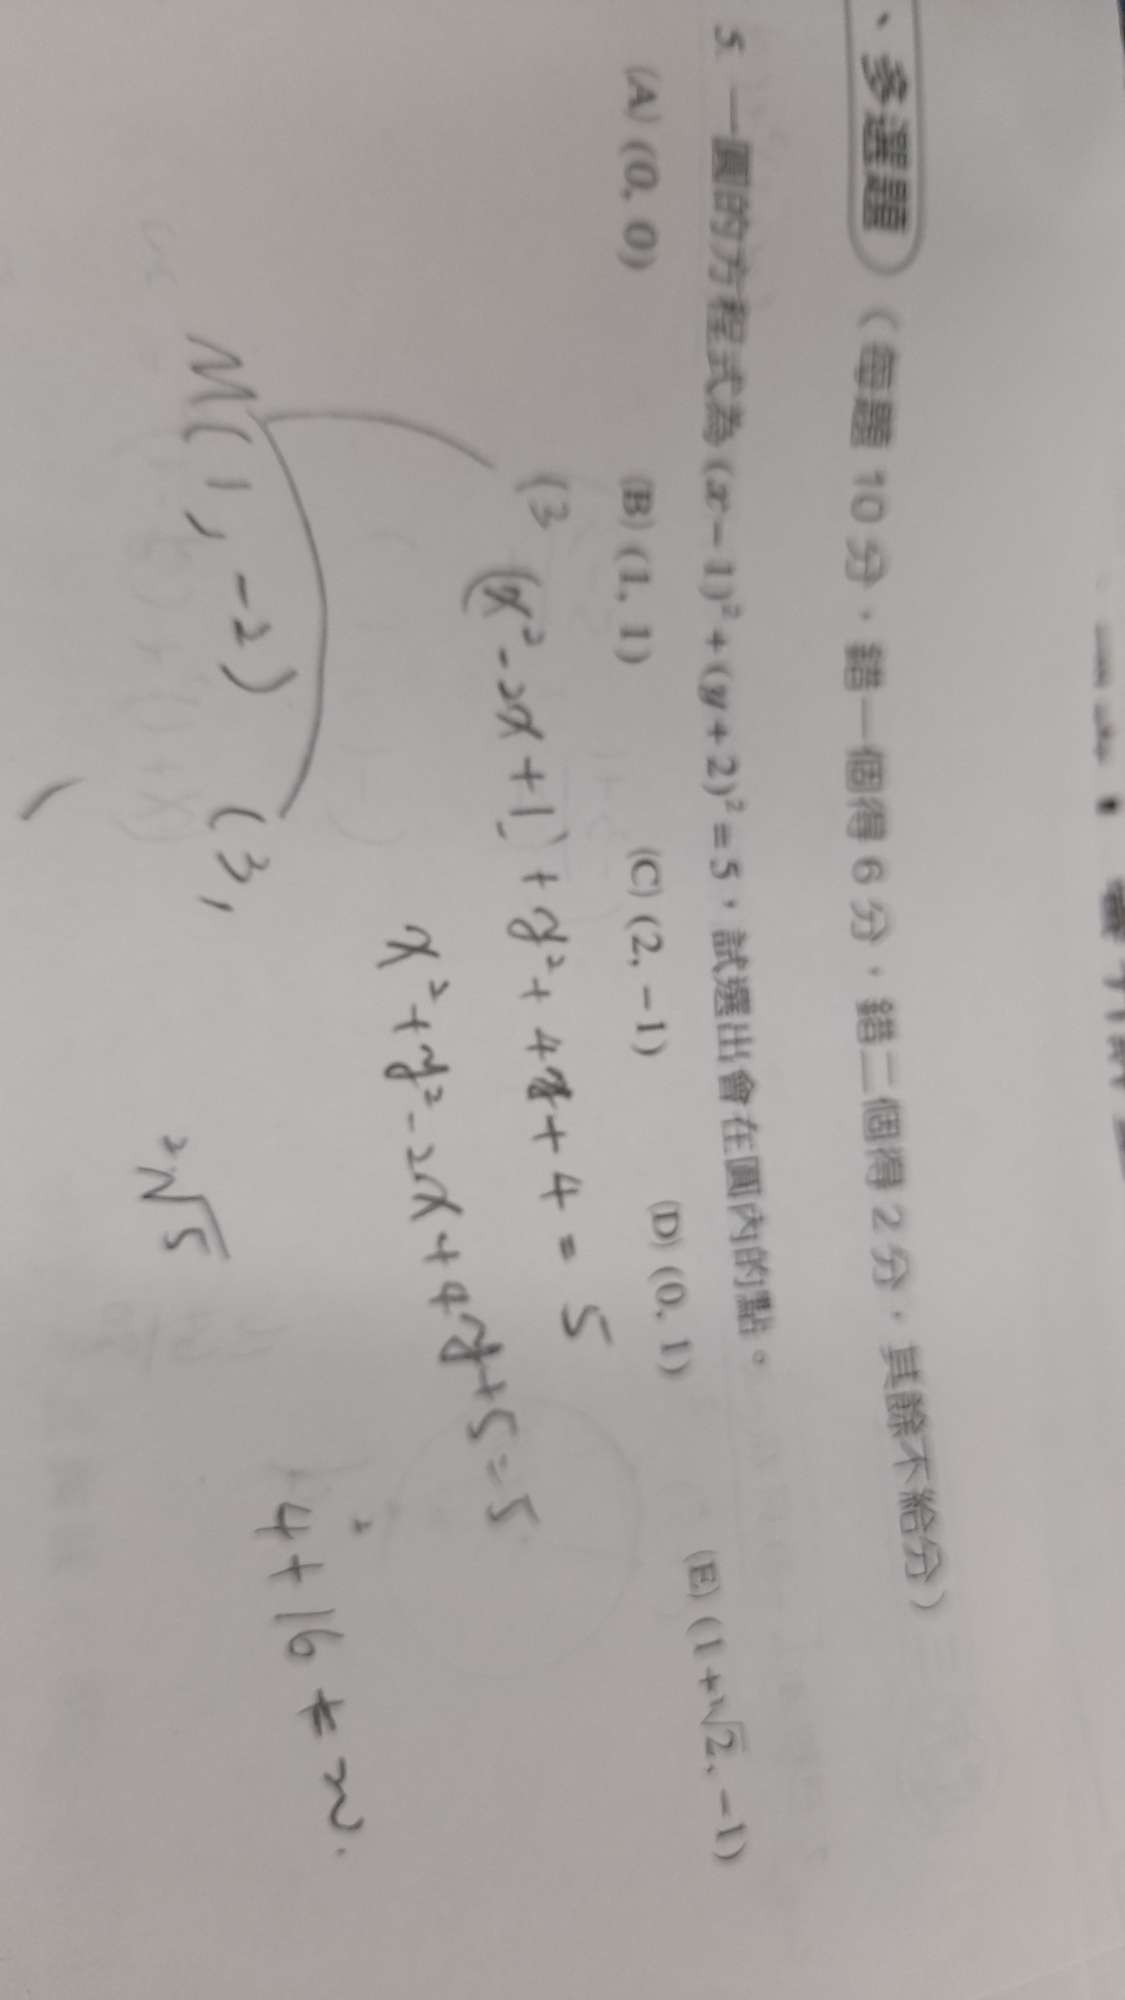 、多選題(每題 10 分,錯一個得 6 分,錯二個得 2 分,其餘不給分)
5. 一圓的方程式為 (x-1)²+(y+2)²=5,試選出會在圓內的點。
(A) (0, 0) (B) (1, 1) (C) (2, -1) (D) (0, 1) (E) (1+√2, -1)
(3
(x²-2x+1)+y²+4y+4=5
x²+y²-2x+4y+5=5
M(1,-2) (3,
²√5
4+16